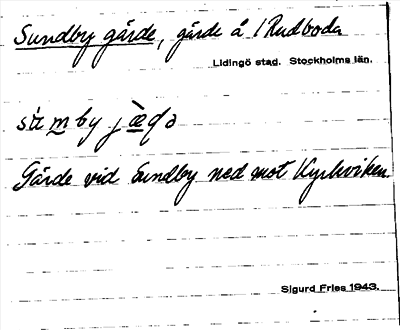 Sundby gärde, gärde å 1 Rudboda
Lidingö stad. Stockholms län.
Gärde vid Sundby ned mot Kyrkviken.
Sigurd Fries 1943.